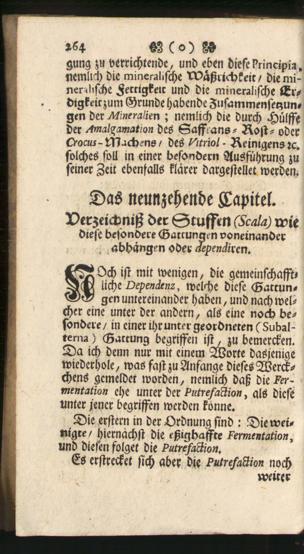 264 ❀ ( o ) ❀
gung zu verrichtende, und eben diese Principia,
nemlich die mineralische Wäßrichkeit / die mi-
neralische Fettigkeit und die mineralische Er-
digkeit zum Grunde habende Zusammensetzun-
gen der Mineralien; nemlich die durch Hülffe
der Amalgamation des Saffrans- Rost- oder
Crocus-Machens / des Vitriol-Reinigens ꝛc.
solches soll in einer besondern Ausführung zu
seiner Zeit ebenfalls klärer dargestellet werden.
Das neunzehende Capitel.
Verzeichniß der Stuffen (Scala) wie
diese besondere Gattungen voneinander
abhängen oder dependiren.
NOch ist mit wenigen, die gemeinschafft-
liche Dependenz, welche diese Gattun-
gen untereinander haben, und nach wel-
cher eine unter der andern, als eine noch be-
sondere / in einer ihr unter geordneten (Subal-
terna) Gattung begriffen ist, zu bemercken.
Da ich denn nur mit einem Worte dasjenige
wiederhole, was fast zu Anfange dieses Werck-
chens gemeldet worden, nemlich daß die Fer-
mentation ehe unter der Putrefaction, als diese
unter jener begriffen werden könne.
Die erstern in der Ordnung sind: Die wei-
nigte / hiernächst die eßighaffte Fermentation,
und diesen folget die Putrefaction.
Es erstrecket sich aber die Putrefaction noch
weiter